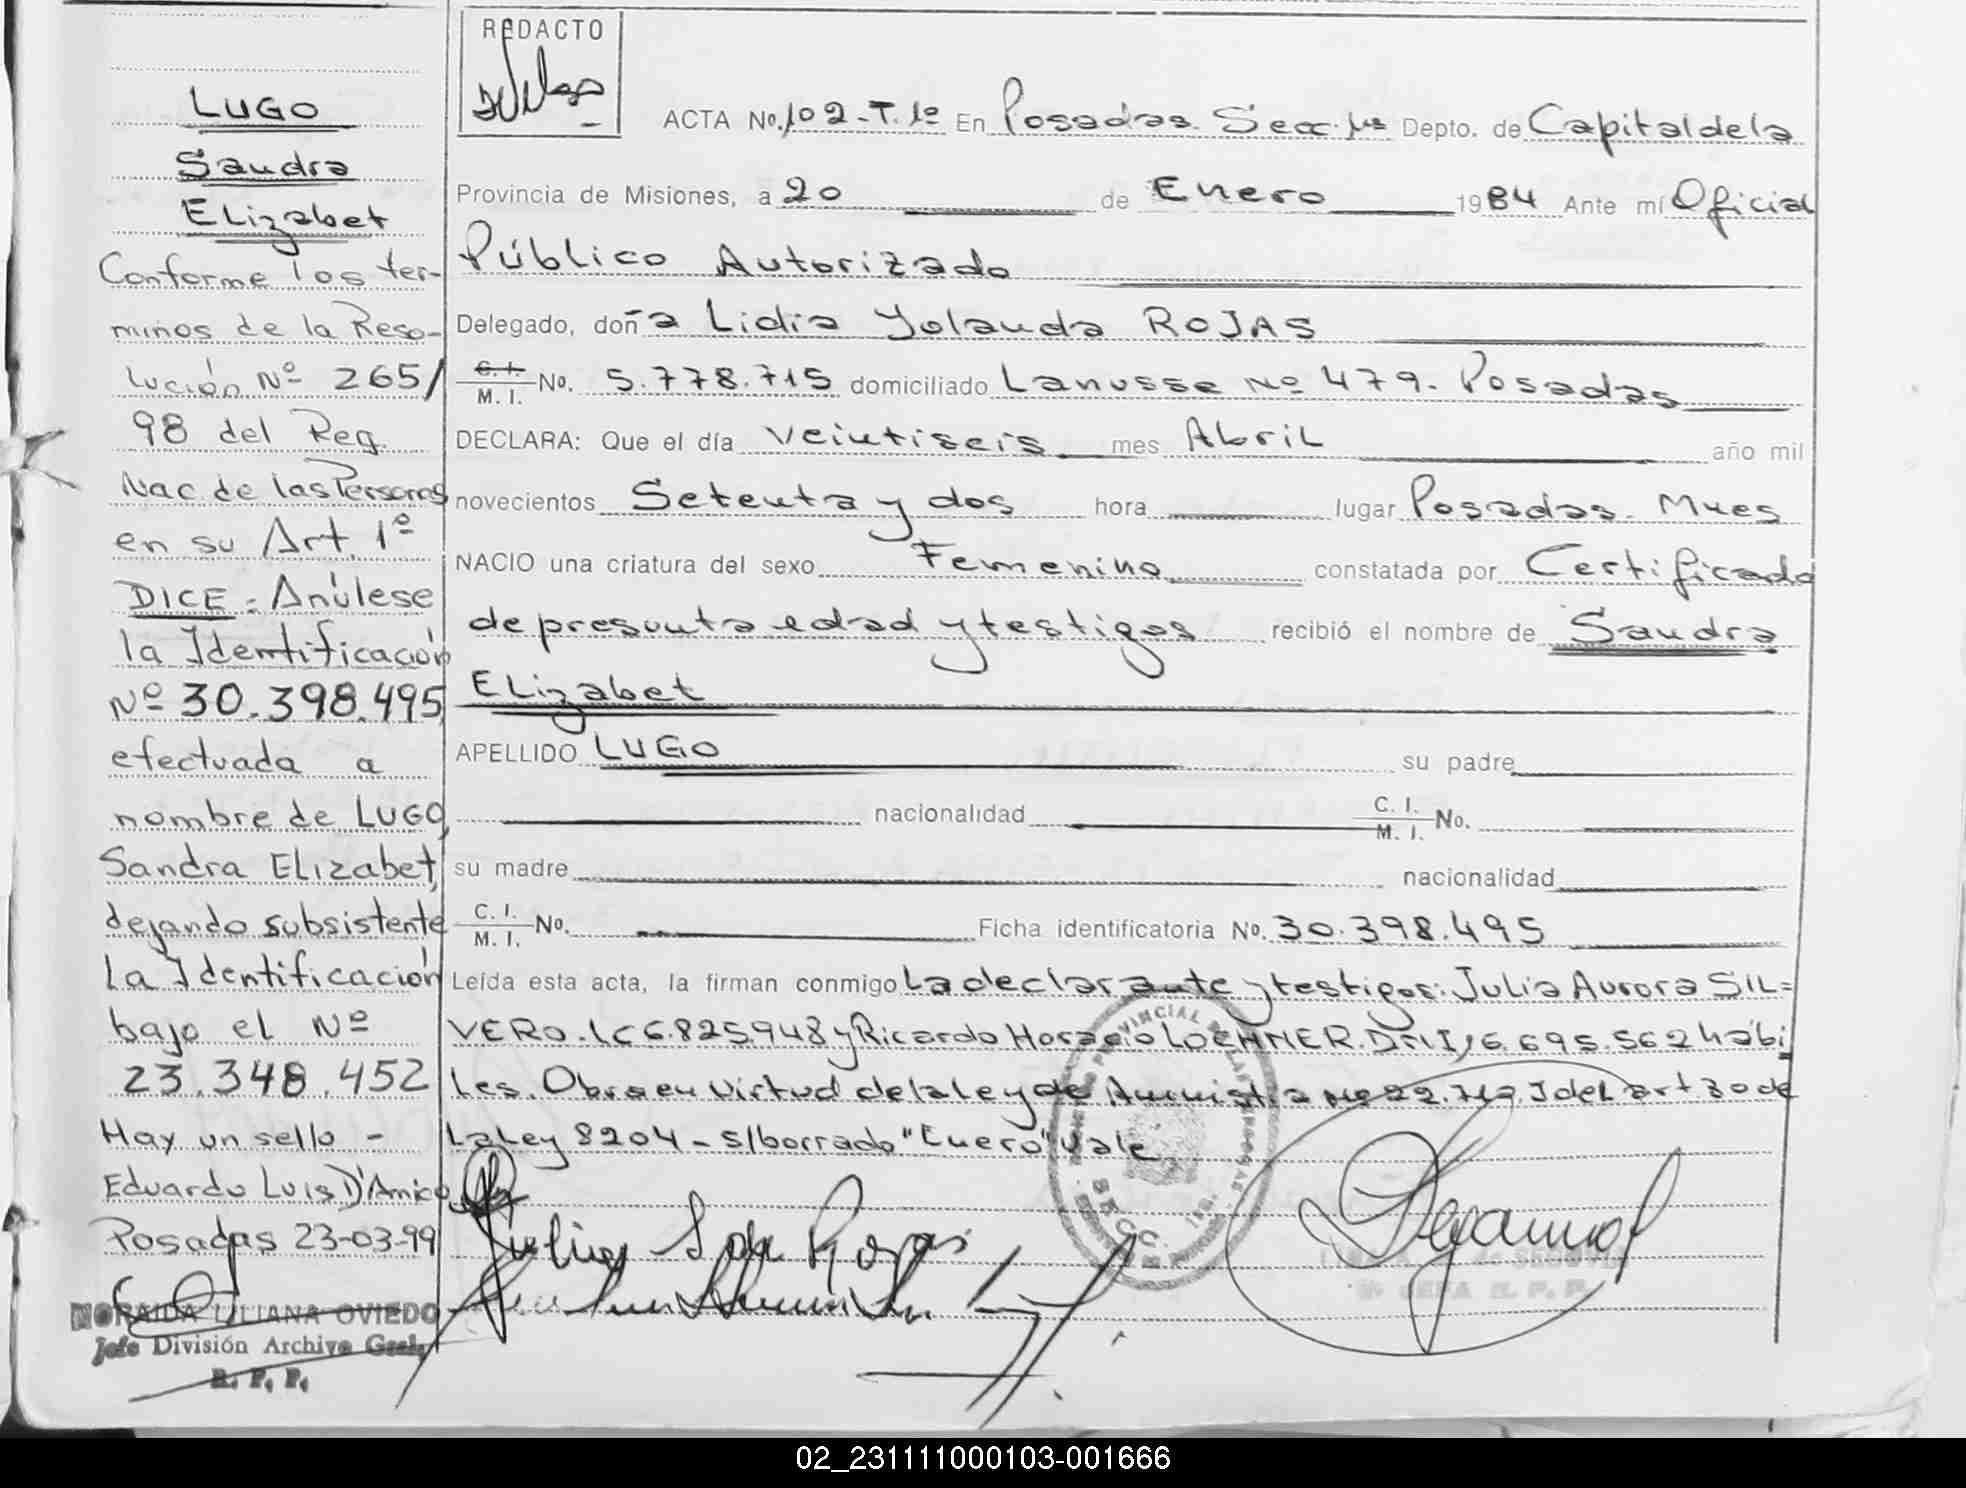 LUGO
Sandra
Elizabet
Conforme los ter-
minos de la Reso-
lución Nº 265/
98 del Reg.
Nac. de las Personas
en su Art. 1º
DICE: Anúlese
la Identificación
Nº 30.398.495
efectuada a
nombre de LUGO,
Sandra Elizabet,
dejando subsistente
La Identificación
bajo el Nº
23.348.452
Hay un sello -
Eduardo Luis D'Amico
Posadas 23-03-99
NORAIDA LILIANA OVIEDO
Jefe División Archivo Gral.
R. P. P.
REDACTO
ACTA No. 102-T.1º En Posadas Secc. 1ra Depto. de Capital de la
Provincia de Misiones, a 20 de Enero 1984 Ante mí Oficial
Público Autorizado
Delegado, doña Lidia Yolanda ROJAS
C. I. / M. I. No. 5.778.715 domiciliado Lanusse Nº 479. Posadas
DECLARA: Que el día veintiseis mes Abril año mil
novecientos Setenta y dos hora lugar Posadas. Mnes
NACIO una criatura del sexo Femenino constatada por Certificado
de presunta edad y testigos recibió el nombre de Sandra
Elizabet
APELLIDO LUGO su padre
nacionalidad C. I. / M. I. No.
su madre nacionalidad
C. I. / M. I. No. Ficha identificatoria No. 30.398.495
Leída esta acta, la firman conmigo La declarante y testigos: Julia Aurora SIL=
VERO. LC 6.825.948 y Ricardo Horacio LOCHNER. D.N.I 16.695.562 hábi
les. Obra en virtud de la ley de Amnistia Nº 22. J del art 30 de
La Ley 8204 - s/borrado "Enero" Vale
SECC. 1ra.
JEFA R. P. P.
02_231111000103-001666